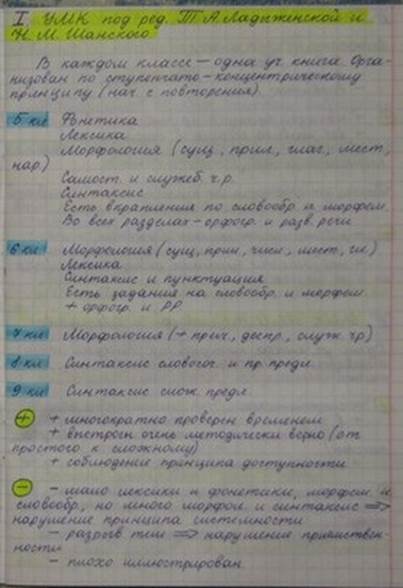 I УМК под ред. Т.А.Ладыженской и
Н.М.Шанского.
В каждом классе – одна уч. книга. Орга-
низован по ступенчато-концентрическому
принципу (нач. с повторения)
5 кл Фонетика
Лексика
Морфология (сущ., прил., глаг., мест.,
нар.)
Самост. и служеб. ч.р.
Синтаксис
Есть вкрапления по словообр. и морфем.
Во всех разделах – орфогр. и разв. речи
6 кл Морфология (сущ., прил., числ., мест., гл.)
Лексика
Синтаксис и пунктуация
Есть задания на словообр. и морфем.
+ орфогр. и РР
7 кл Морфология (+ прич., деепр., служ. ч.р.)
8 кл Синтаксис словосоч. и пр. предл.
9 кл Синтаксис слож. предл.
+ + многократно проверен временем
+ выстроен очень методически верно (от
простого к сложному)
+ соблюдение принципа доступности
– – мало лексики и фонетики, морфем. и
словообр., но много морфол. и синтаксис ⇒
нарушение принципа системности
– разрыв тем ⇒ нарушение преемствен-
ности
– плохо иллюстрирован